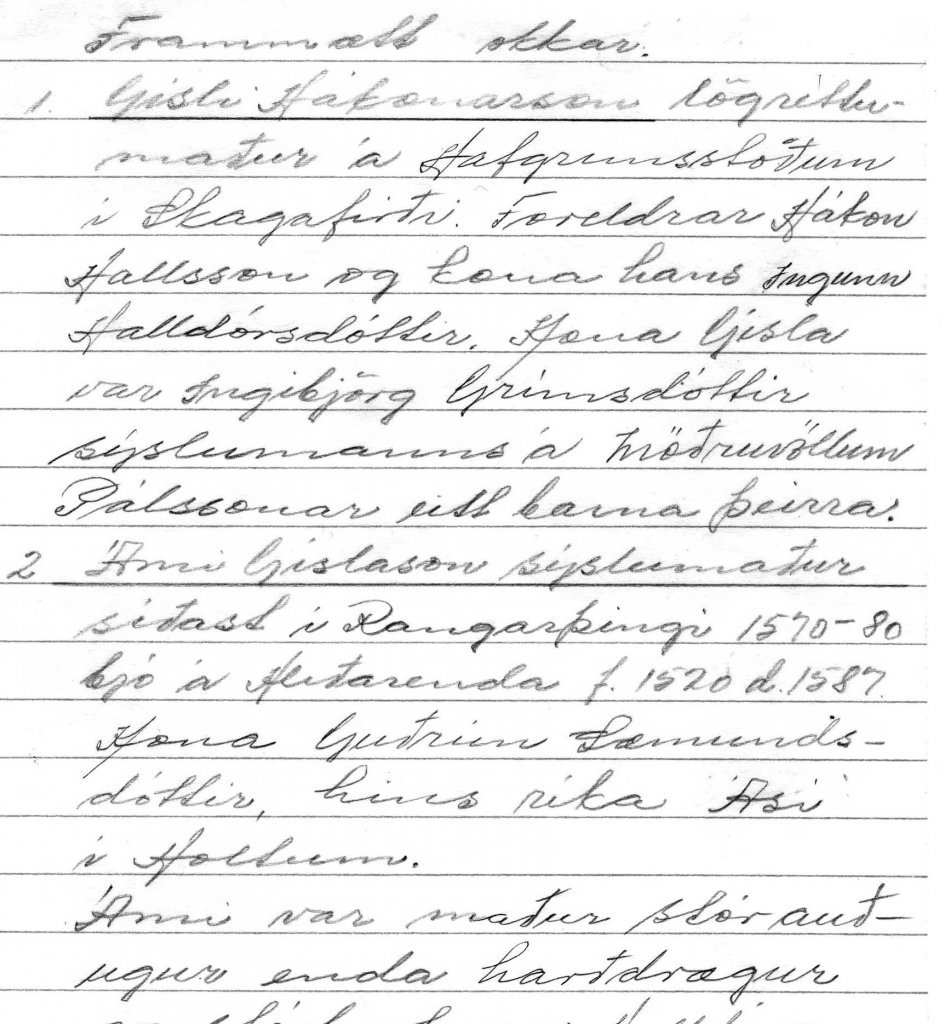 Frammætt okkar.
1. Gísli Hákonarson lögréttu-
maður á Hafgrimsstöðum
í Skagafirði. Foreldrar Hákon
Hallsson og kona hans Ingunn
Halldórsdóttir. Kona Gísla
var Ingibjörg Grímsdóttir
sýslumanns á Möðruvöllum
Pálssonar eitt barna þeirra:
2 Árni Gíslason sýslumaður
síðast í Rangárþingi 1570-80
bjó á Hlíðarenda f. 1520 d. 1587.
Kona Guðrún Sæmunds-
dóttir, hins ríka Ási
í Holtum.
Árni var maður stórauð-
ugur enda harðdrægur